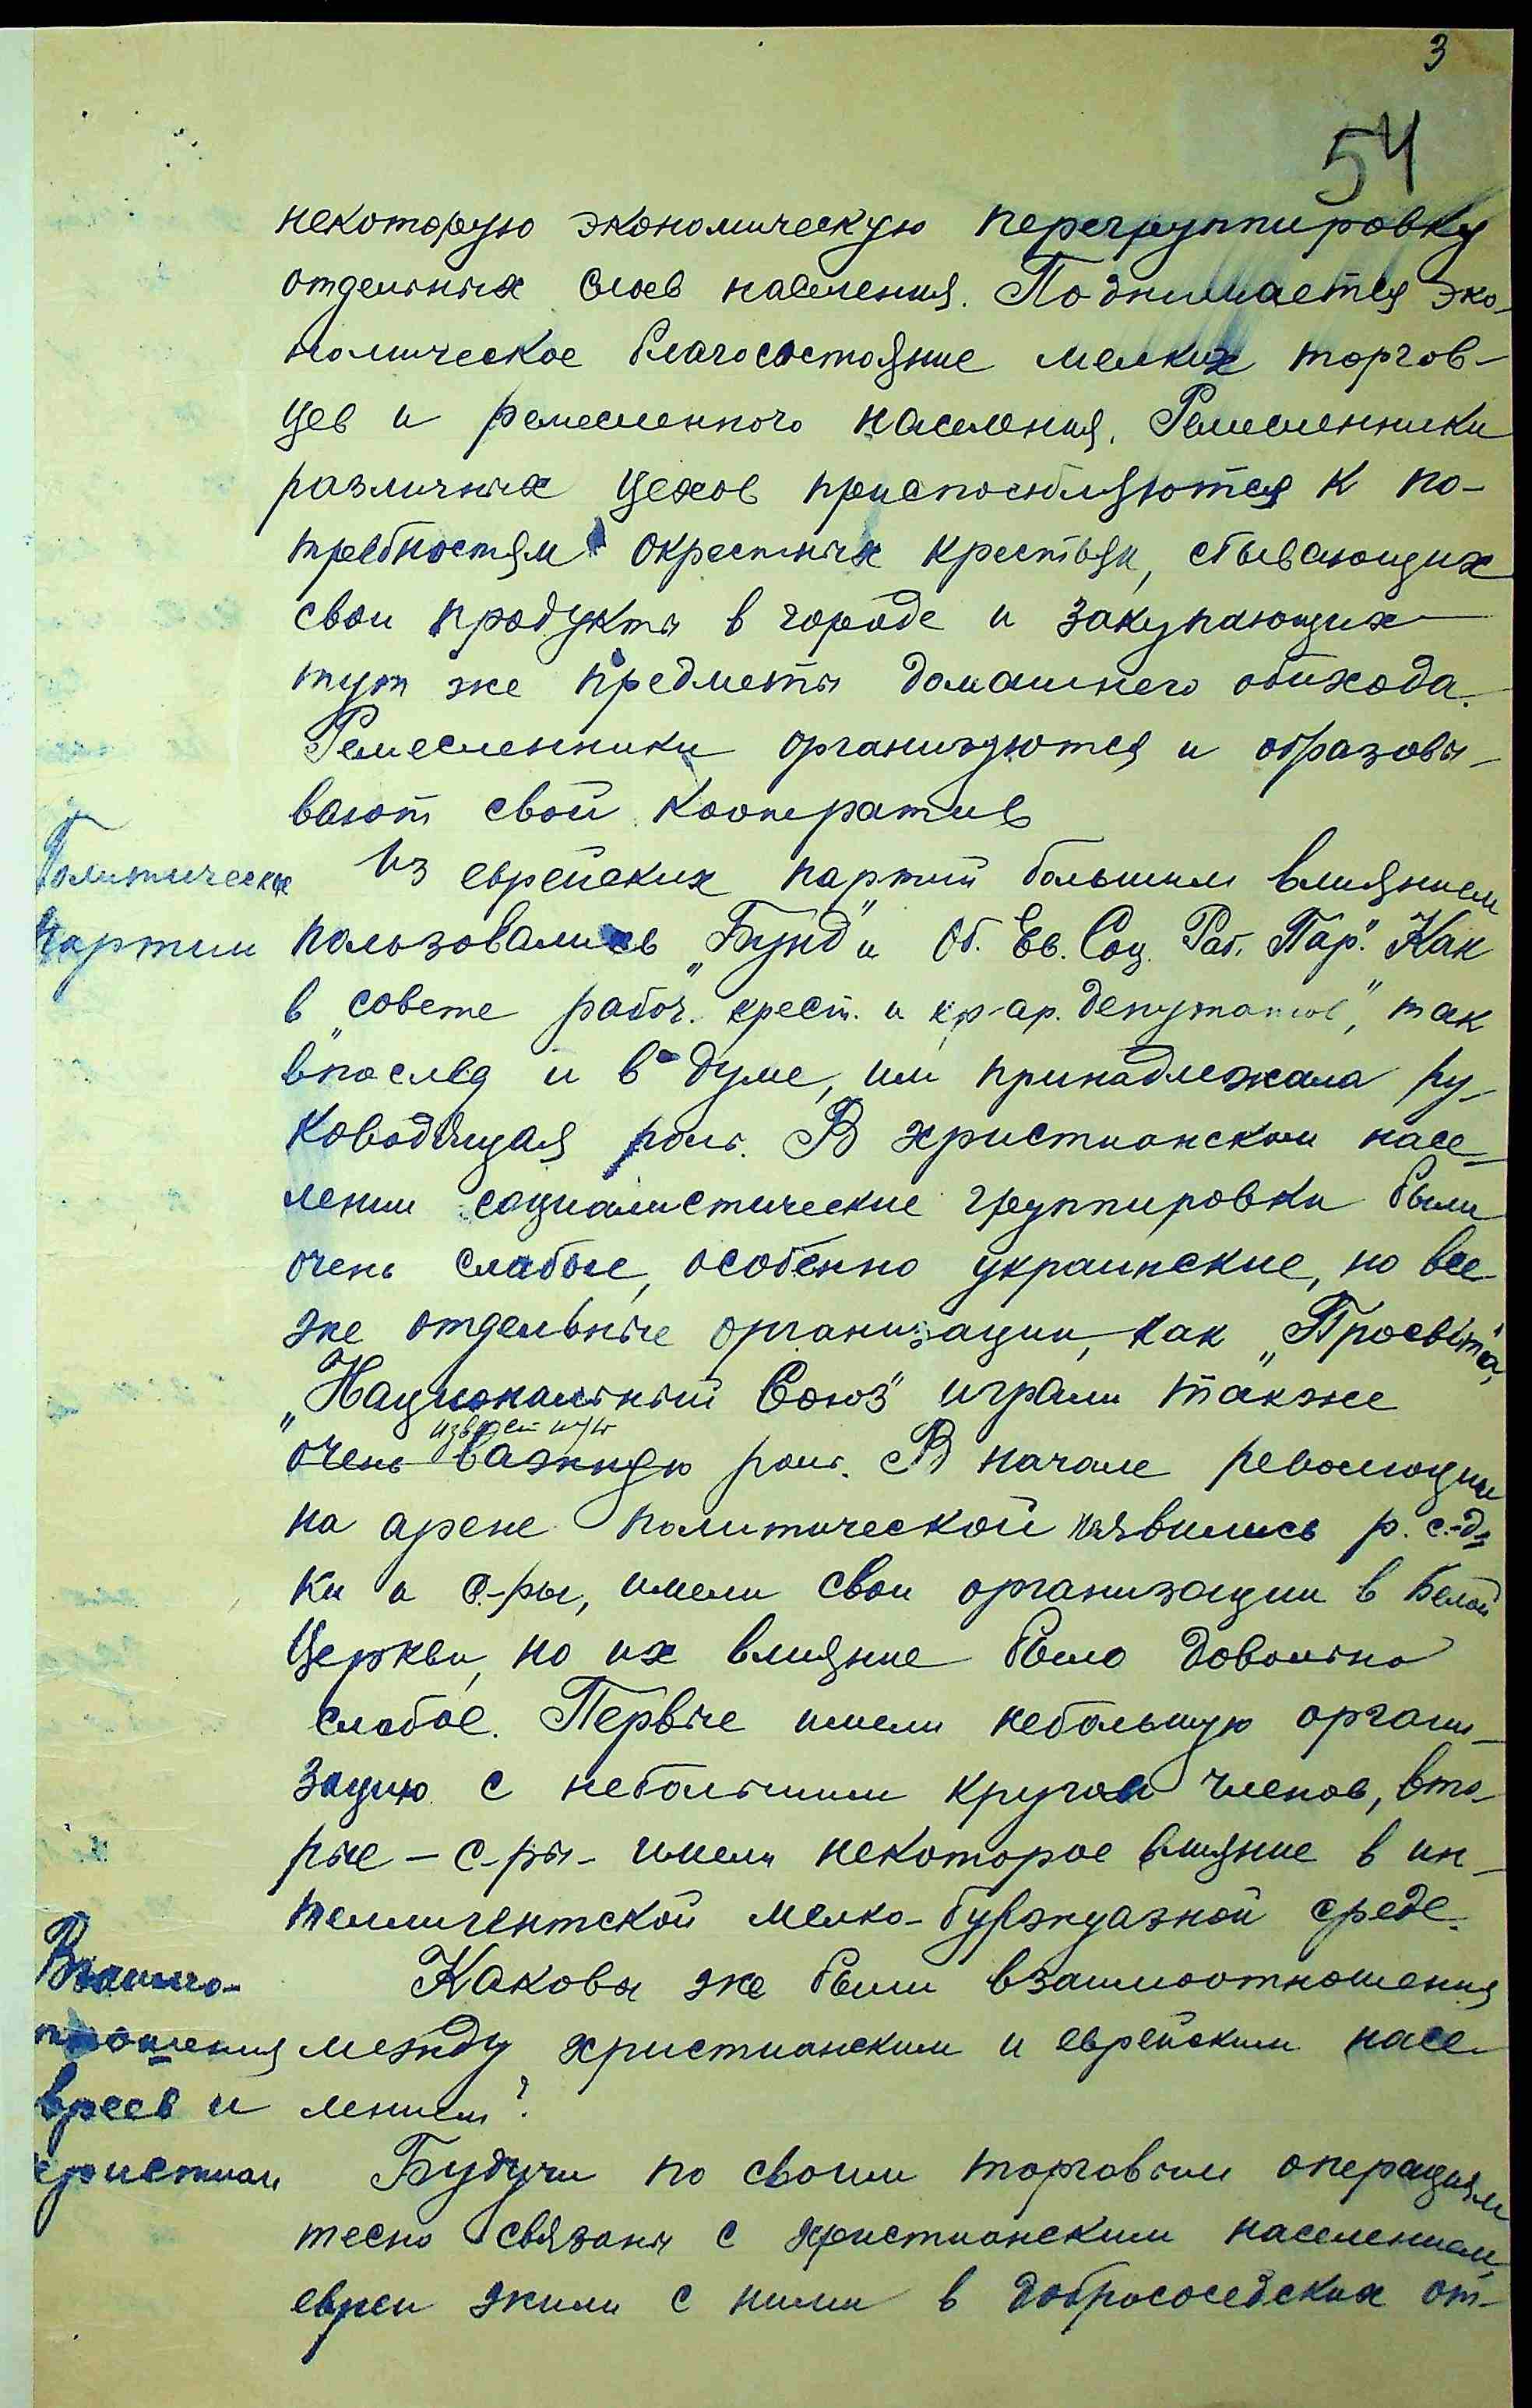 3
54
некоторую экономическую перегруппировку
отдельных слоев населения. Поднимается эко-
номическое благосостояние мелких торгов-
цев и ремесленного населения. Ремесленники
различных цехов приспособляются к по-
требностям окрестных крестьян, сбывающих
свои продукты в городе и закупающих
тут же предметы домашнего обихода.
Ремесленники организуются и образовы-
вают свой кооператив
Политические
партии
Из еврейских партий большим влиянием
пользовались „Бунд" и Об. Ев. Соц. Раб. Пар." Как
в „совете рабоч. крест. и кр-ар. депутатов", так
впослед и в думе, им принадлежала ру-
ководящая роль. В христианском насе-
лении социалистические группировки были
очень слабые, особенно украинские, но все
же отдельные организации, как „Просвiта",
„Национальный Союз" играли также
очень важную роль. В начале революции
на арене политической появились р. с.-д-
ки и с-ры, имели свои организации в Белой
Церкви, но их влияние было довольно
слабое. Первые имели небольшую органи-
зацию с небольшим кругом членов, вто-
рые – с-ры – имели некоторое влияние в ин-
теллигентской мелко-буржуазной среде.
Взаимо-
отношения
евреев и
христиан
Каковы же были взаимоотношения
между христианским и еврейским насе-
лением?
Будучи по своим торговым операциям
тесно связаны с христианским населением,
евреи жили с ними в добрососедских от-